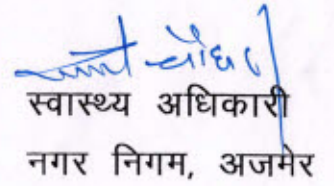 स्वास्थ्य अधिकारी
नगर निगम, अजमेर